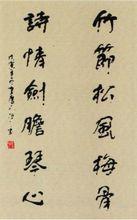 竹節松風梅骨
詩情劍膽琴心